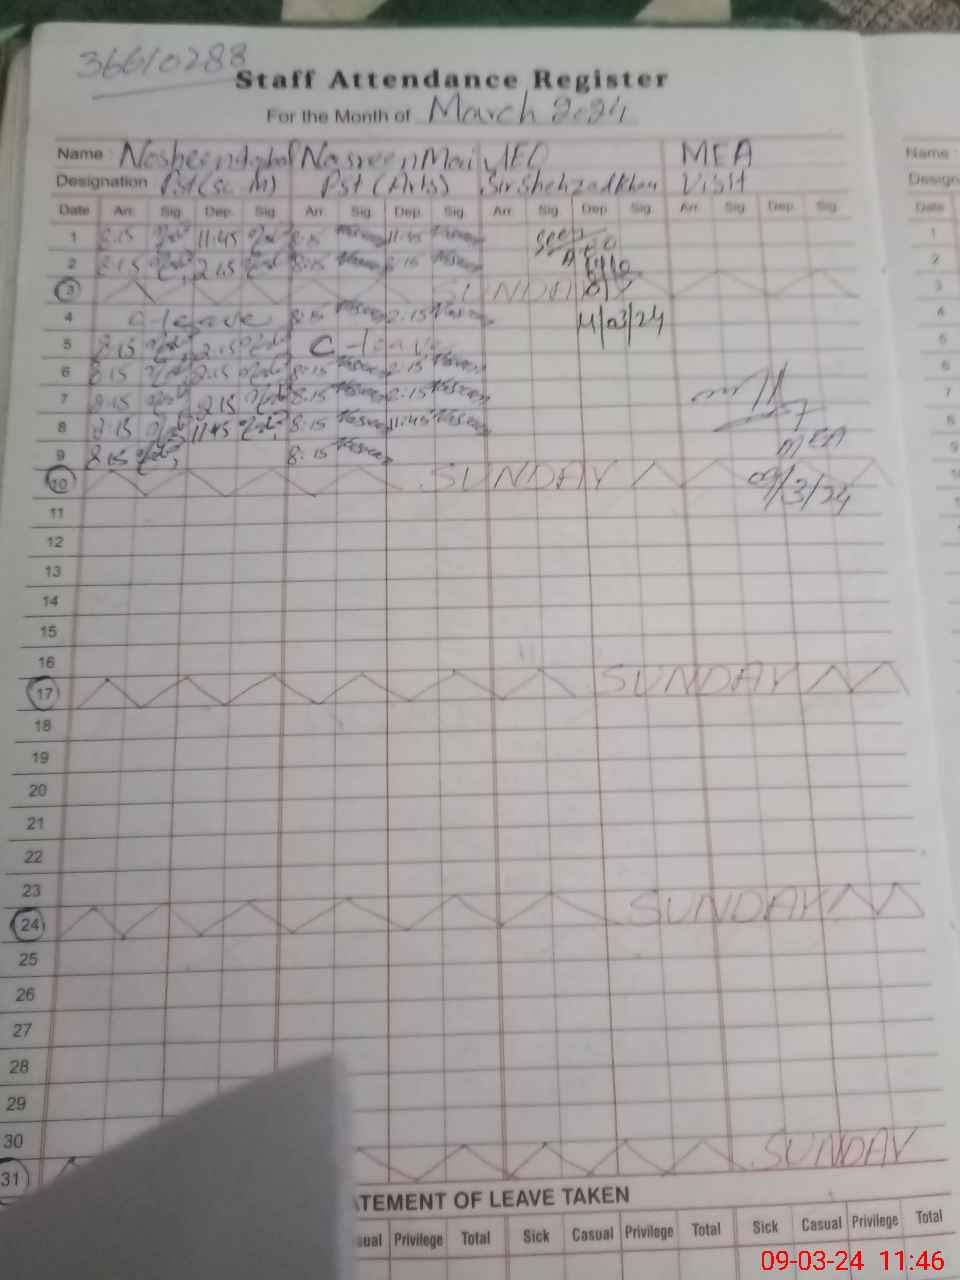 36610288
Staff Attendance Register
For the Month of March 2024
Name : Nosheen Nasreen AEO MEA
Designation Pst (Sc. M) Pst (Arts) Sir Shehzad Khan Visit
Date Arr. Sig. Dep. Sig. Arr. Sig. Dep. Sig. Arr. Sig. Dep. Sig. Arr. Sig. Dep. Sig.
1 8:15 11:45 8:15 11:45 Seen
2 8:15 2:15 8:15 2:15 AEO
3 SUNDAY
4 leave 8:15 2:15 /03/24
5 8:15 2:15 C-leave
6 8:15 2:15 8:15 2:15
7 8:15 2:15 8:15 2:15
8 8:15 11:45 8:15 11:45
9 8:15 8:15 MEA
10 SUNDAY 09/3/24
11
12
13
14
15
16
17 SUNDAY
18
19
20
21
22
23
24 SUNDAY
25
26
27
28
29
30
31 SUNDAY
ATEMENT OF LEAVE TAKEN
sual Privilege Total Sick Casual Privilege Total Sick Casual Privilege Total
Name :
Design
Date
1
2
3
4
5
6
7
8
9
09-03-24 11:46